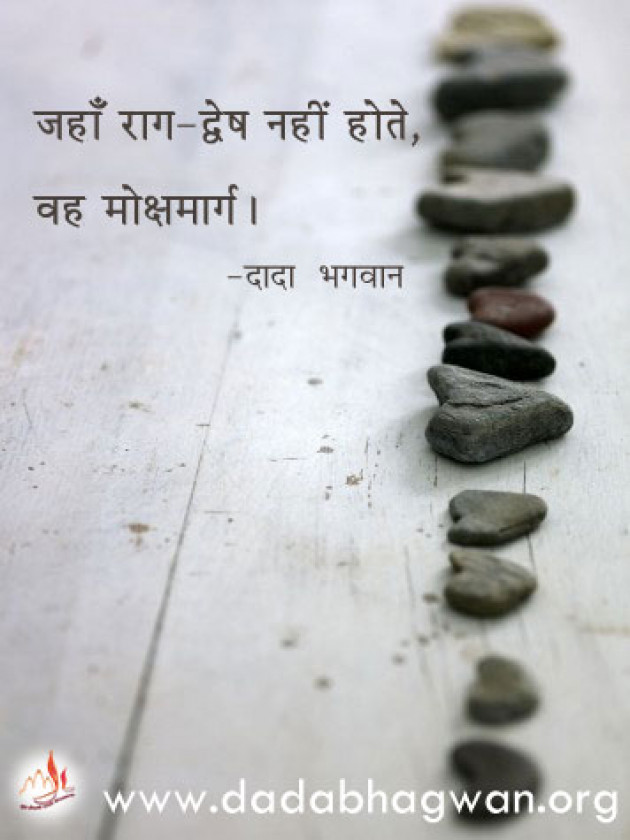 जहाँ राग-द्वेष नहीं होते,
वह मोक्षमार्ग।
-दादा भगवान
www.dadabhagwan.org